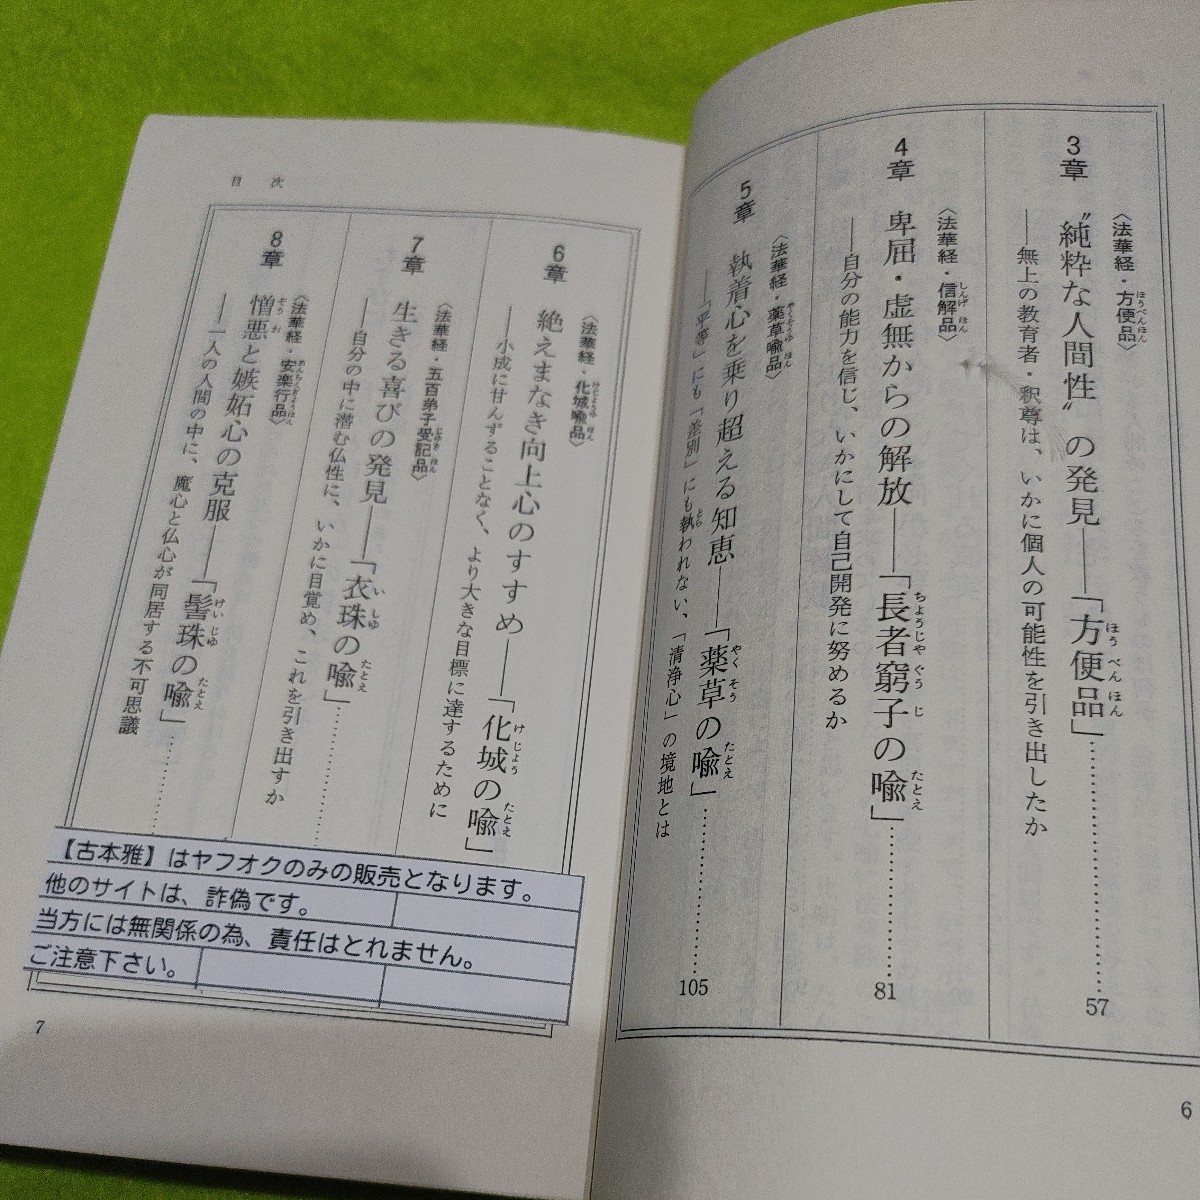 3章 “純粋な人間性”の発見――「方便品」……………57
〈法華経・方便品〉
――無上の教育者・釈尊は、いかに個人の可能性を引き出したか
4章 卑屈・虚無からの解放――「長者窮子の喩」……………81
〈法華経・信解品〉
――自分の能力を信じ、いかにして自己開発に努めるか
5章 執着心を乗り超える知恵――「薬草の喩」……………105
〈法華経・薬草喩品〉
――「平等」にも「差別」にも執われない、「清浄心」の境地とは
6
目次
6章 絶えまなき向上心のすすめ――「化城の喩」
〈法華経・化城喩品〉
小成に甘んずることなく、より大きな目標に達するために
7章 生きる喜びの発見――「衣珠の喩」……………
〈法華経・五百弟子受記品〉
――自分の中に潜む仏性に、いかに目覚め、これを引き出すか
8章 憎悪と嫉妬心の克服――「髻珠の喩」……………
〈法華経・安楽行品〉
――一人の人間の中に、魔心と仏心が同居する不可思議
【古本雅】はヤフオクのみの販売となります。
他のサイトは、詐偽です。
当方には無関係の為、責任はとれません。
ご注意下さい。
7